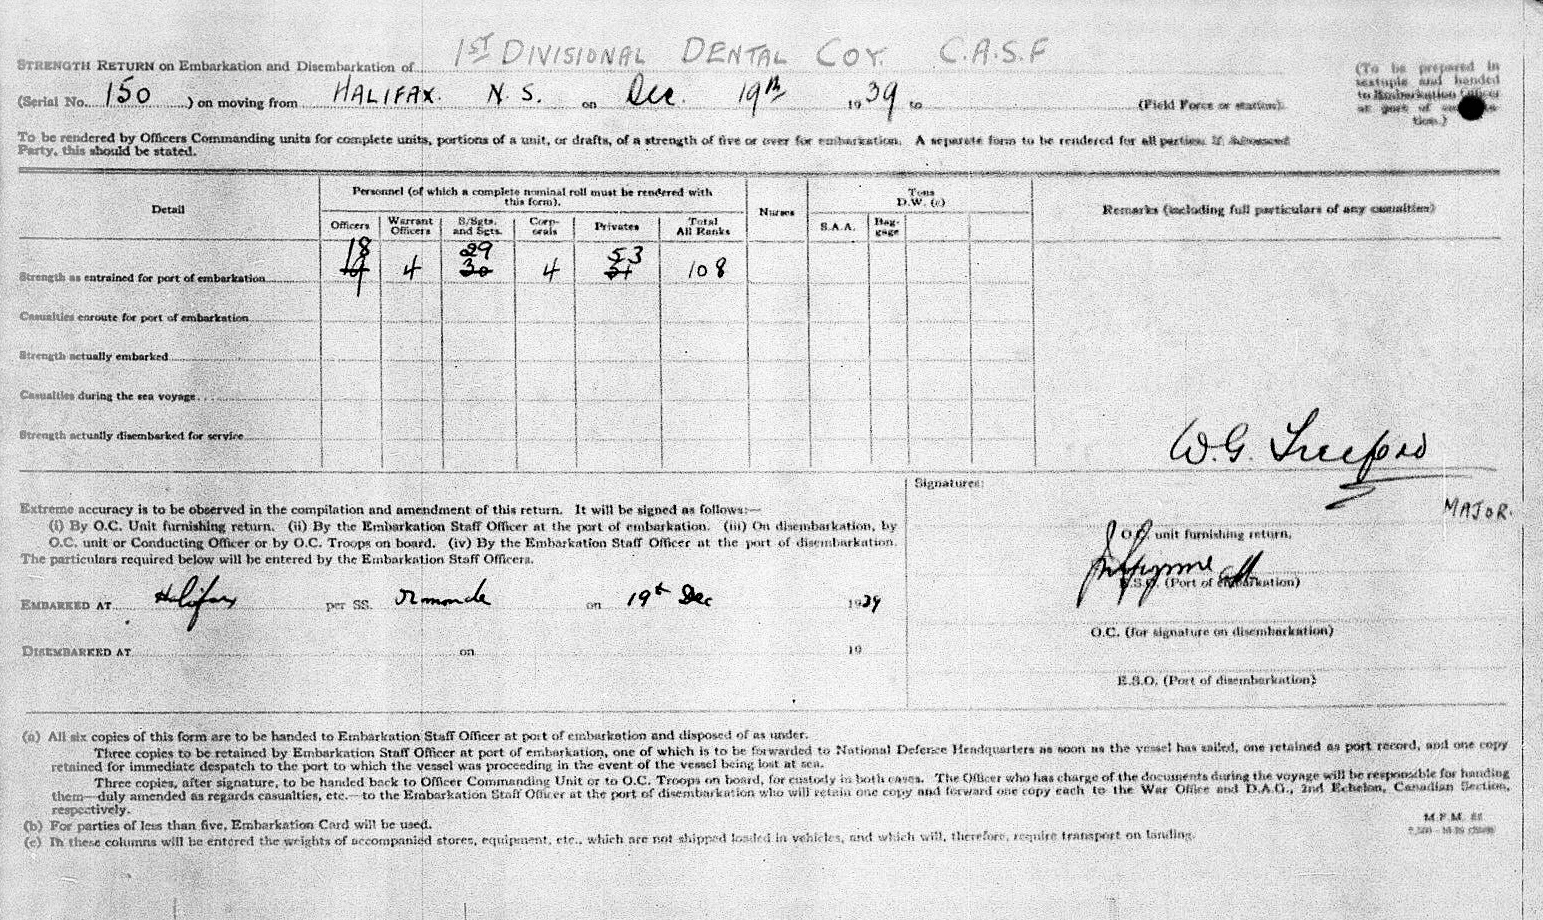 1ST DIVISIONAL DENTAL COY. C.A.S.F
STRENGTH RETURN on Embarkation and Disembarkation of
(To be prepared in
sextuple and handed
to Embarkation Officer
at port of
tion.)
(Serial No. 150 ) on moving from HALIFAX. N.S. on Dec. 19th 1939 to (Field Force or station).
To be rendered by Officers Commanding units for complete units, portions of a unit, or drafts, of a strength of five or over for embarkation. A separate form to be rendered for all parties. If Advanced
Party, this should be stated.
Detail
Personnel (of which a complete nominal roll must be rendered with
this form).
Officers
Warrant
Officers
S/Sgts.
and Sgts.
Corp-
orals
Privates
Total
All Ranks
Nurses
Tons
D.W. (c)
S.A.A.
Bag-
gage
Remarks (including full particulars of any casualties)
18 29 53
Strength as entrained for port of embarkation 19 4 30 4 51 108
Casualties enroute for port of embarkation
Strength actually embarked
Casualties during the sea voyage
Strength actually disembarked for service
W.G.
MAJOR.
Signatures:
O.C. unit furnishing return.
E.S.O. (Port of embarkation)
O.C. (for signature on disembarkation)
E.S.O. (Port of disembarkation)
Extreme accuracy is to be observed in the compilation and amendment of this return. It will be signed as follows:—
(i) By O.C. Unit furnishing return. (ii) By the Embarkation Staff Officer at the port of embarkation. (iii) On disembarkation, by
O.C. unit or Conducting Officer or by O.C. Troops on board. (iv) By the Embarkation Staff Officer at the port of disembarkation.
The particulars required below will be entered by the Embarkation Staff Officers.
EMBARKED AT Halifax per SS. Ormonde on 19th Dec 1939
DISEMBARKED AT on 19
(a) All six copies of this form are to be handed to Embarkation Staff Officer at port of embarkation and disposed of as under.
Three copies to be retained by Embarkation Staff Officer at port of embarkation, one of which is to be forwarded to National Defence Headquarters as soon as the vessel has sailed, one retained as port record, and one copy
retained for immediate despatch to the port to which the vessel was proceeding in the event of the vessel being lost at sea.
Three copies, after signature, to be handed back to Officer Commanding Unit or to O.C. Troops on board, for custody in both cases. The Officer who has charge of the documents during the voyage will be responsible for handing
them—duly amended as regards casualties, etc.—to the Embarkation Staff Officer at the port of disembarkation who will retain one copy and forward one copy each to the War Office and D.A.G., 2nd Echelon, Canadian Section,
respectively.
(b) For parties of less than five, Embarkation Card will be used.
(c) In these columns will be entered the weights of accompanied stores, equipment, etc., which are not shipped loaded in vehicles, and which will, therefore, require transport on landing.
M.F.M.